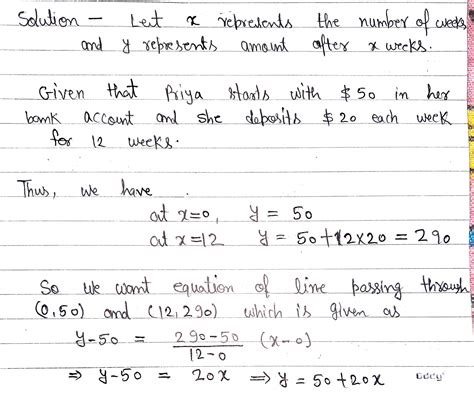 Solution - Let x represents the number of weeks
and y represents amount after x weeks.
Given that Priya starts with $50 in her
bank account and she deposits $20 each week
for 12 weeks.
Thus, we have
at x=0, y = 50
at x=12 y = 50+12×20 = 290
So we want equation of line passing through
(0,50) and (12,290) which is given as
y-50 = 290-50 / 12-0 (x-0)
⇒ y-50 = 20x ⇒ y = 50+20x